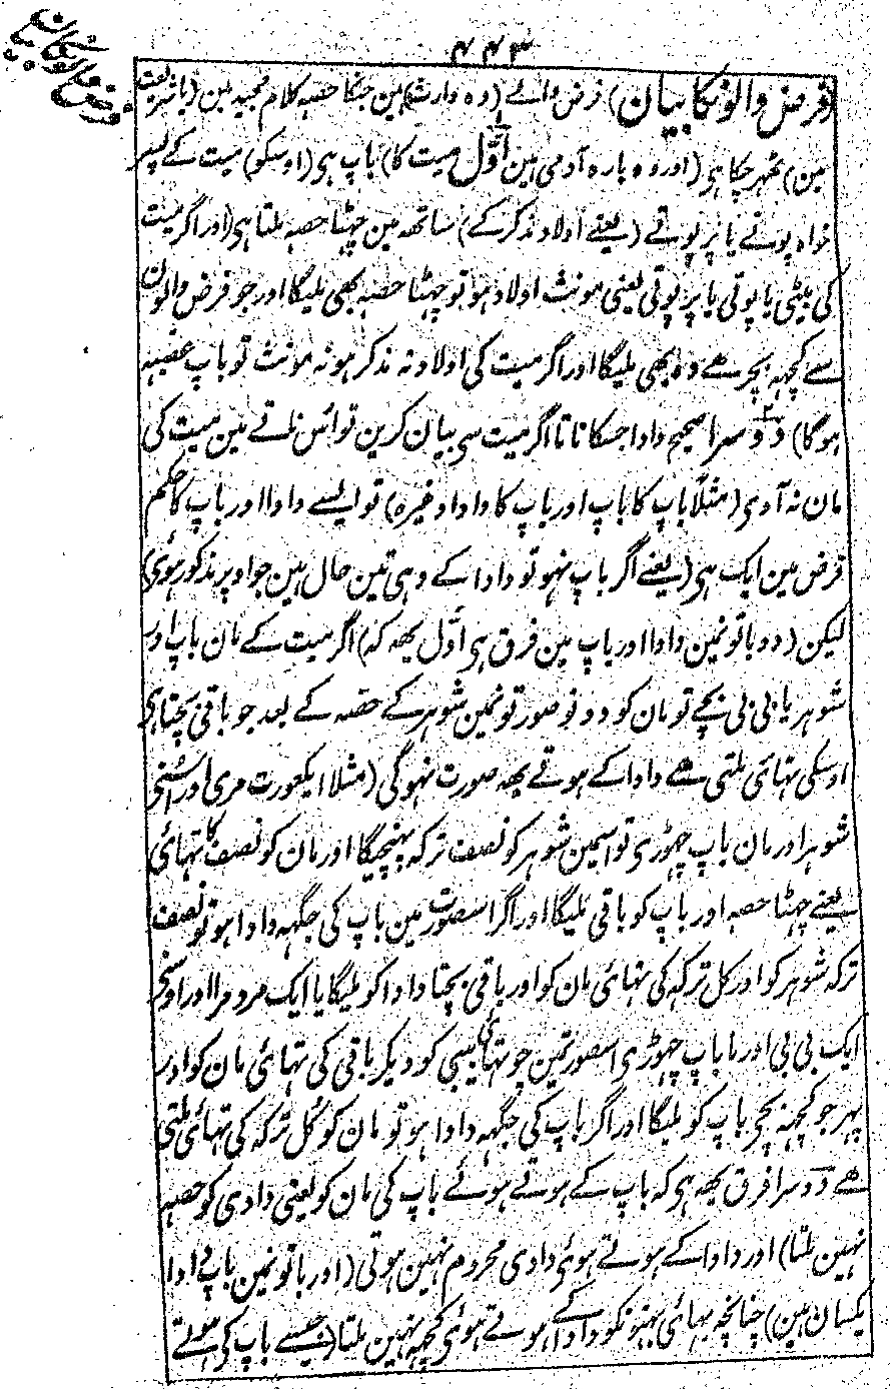 ۴۴۳
فرض والونکا بیان
(فرض والونکا بیان) فرض والے (وہ وارث) ہین جنکا حصہ کلام مجید مین (باشریعت
مین) ٹھہر چکا ہی (اور وہ بارہ آدمی ہین اوّل میت کا) باپ ہی (اوسکو) میت کے پسر
خواہ پوتے یا پرپوتے (یعنے اولاد مذکر کے) ساتھہ مین چھٹا حصہ ملتا ہی (اور اگر میت
کی بیٹی یا پوتی یا پرپوتی یعنی مونث اولاد ہو تو چھٹا حصہ بھی ملیگا اور جو فرض والون
سے کچھہ بچ رہے وہ بھی ملیگا اور اگر میت کی اولاد نہ مذکر ہو نہ مونث تو باپ عصبہ
ہوگا) دوسرا صحیح دادا جسکا ناتا اگر میت سی بیان کرین تو اس ناتے مین میت کی
مان نہ آوی (مثلاً باپ کا باپ اور باپ کا دادا وغیرہ) تو ایسے دادا اور باپ کا حکم
فرض مین ایک ہی (یعنے اگر باپ نہو تو دادا کے وہی تین حال ہین جو اوپر مذکور ہوئی)
لیکن (دو باتونمین دادا اور باپ مین فرق ہی اوّل یھہ کہ) اگر میت کے مان باپ اور
شوہر یا بی بی بچے تو مان کو دونو صورتونمین شوہر کے حصہ کے بعد جو باقی بچتا ہی
اوسکی تہائی ملتی ہے دادا کے ہوتے یھہ صورت نہوگی (مثلا ایکعورت مری اور اسنی
شوہر اور مان باپ چھوڑی تو اسمین شوہر کو نصف ترکہ پہنچیگا اور مان کو نصف کا تہائی
یعنے چھٹا حصہ اور باپ کو باقی ملیگا اور اگر اسصورت مین باپ کی جگہہ دادا ہو تو نصف
ترکہ شوہر کو اور کل ترکہ کی تہائی مان کو اور باقی بچتا دادا کو ملیگا یا ایک مرد مرا اور اوسنے
ایک بی بی اور ماباپ چھوڑی اسصورتمین چوتھائی بیبی کو دیکر باقی کی تہائی مان کو اور
پہر جو کچھہ بچی باپ کو ملیگا اور اگر باپ کی جگہہ دادا ہو تو مان کو کُل ترکہ کی تہائی ملتی
ہے دوسرا فرق یھہ ہی کہ باپ کے ہوتے ہوئے باپ کی مان کو یعنی دادی کو حصہ
نہین ملتا) اور دادا کے ہوتے ہوئی دادی محروم نہین ہوتی (اور باتونمین باپ دادا
یکسان ہین) چنانچہ بہائی بہنونکو دادا کے ہوتے ہوئی کچھہ نہین ملتا (جیسے باپ کی ہوتے